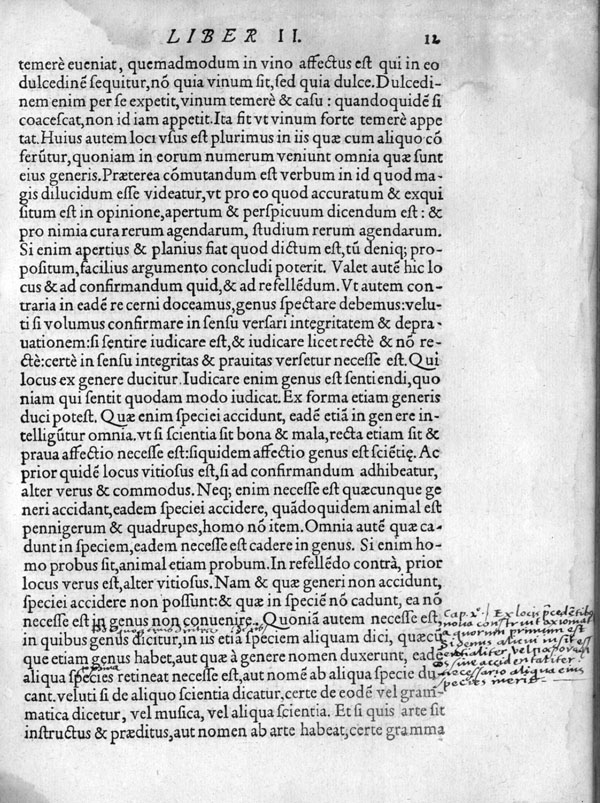 LIBER II. 12
temerè eueniat, quemadmodum in vino affectus est qui in eo
dulcedinē sequitur,nō quia vinum sit, sed quia dulce. Dulcedi-
nem enim per se expetit,vinum temerè & casu : quandoquidē si
coacescat,non id iam appetit. Ita fit vt vinum forte temerè appe
tat. Huius autem loci vsus est plurimus in iis quæ cum aliquo cō
ferūtur, quoniam in eorum numerum veniunt omnia quæ sunt
eius generis. Præterea cōmutandum est verbum in id quod ma-
gis dilucidum esse videatur,vt pro eo quod accuratum & exqui
situm est in opinione,apertum & perspicuum dicendum est : &
pro nimia cura rerum agendarum, studium rerum agendarum.
Si enim apertius & planius fiat quod dictum est,tū deniq; pro-
positum,facilius argumento concludi poterit. Valet autē hic lo
cus & ad confirmandum quid,& ad refellēdum. Vt autem con-
traria in eadē re cerni doceamus,genus spectare debemus:velu-
ti si volumus confirmare in sensu versari integritatem & depra-
uationem:si sentire iudicare est,& iudicare licet rectè & nō re-
ctè:certè in sensu integritas & prauitas versetur necesse est. Qui
locus ex genere ducitur. Iudicare enim genus est sentiendi,quo
niam qui sentit quodam modo iudicat. Ex forma etiam generis
duci potest. Quæ enim speciei accidunt, eadē etiā in genere in-
telligūtur omnia. vt si scientia sit bona & mala,recta etiam sit &
praua affectio necesse est:siquidem affectio genus est sciētię. Ac
prior quidē locus vitiosus est,si ad confirmandum adhibeatur,
alter verus & commodus. Neq; enim necesse est quæcunque ge
neri accidant,eadem speciei accidere, quādoquidem animal est
pennigerum & quadrupes,homo nō item. Omnia autē quæ ca-
dunt in speciem,eadem necesse est cadere in genus. Si enim ho-
mo probus sit,animal etiam probum. In refellēdo contrà, prior
locus verus est,alter vitiosus. Nam & quæ generi non accidunt,
speciei accidere non possunt:& quæ in speciē nō cadunt, ea nō
necesse est in genus non conuenire. Quoniā autem necesse est,
in quibus genus dicitur,in iis etiā speciem aliquam dici, quæcū
que etiam genus habet,aut quæ à genere nomen duxerunt, eadē
aliqua species retineat necesse est,aut nomē ab aliqua specie du-
cant. veluti si de aliquo scientia dicatur,certe de eodē vel gram-
matica dicetur, vel musica, vel aliqua scientia. Et si quis arte sit
instructus & præditus,aut nomen ab arte habeat,certe gramma
Cap. x. Ex locis p̄cedētibus
construit axiomata
quorum primum est
Si genus alicui insit
essentialiter, vel
siue accidentaliter
necessario aliqua eius
species inerit